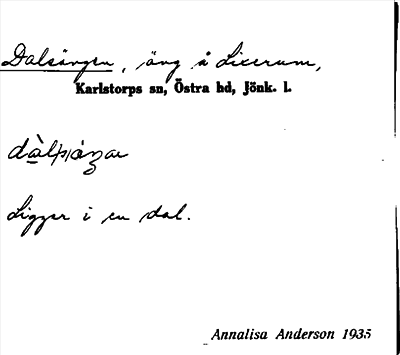 Dalsängen, äng å Lixerum,
Karlstorps sn, Östra hd, Jönk. l.
Ligger i en dal.
Annalisa Anderson 1935